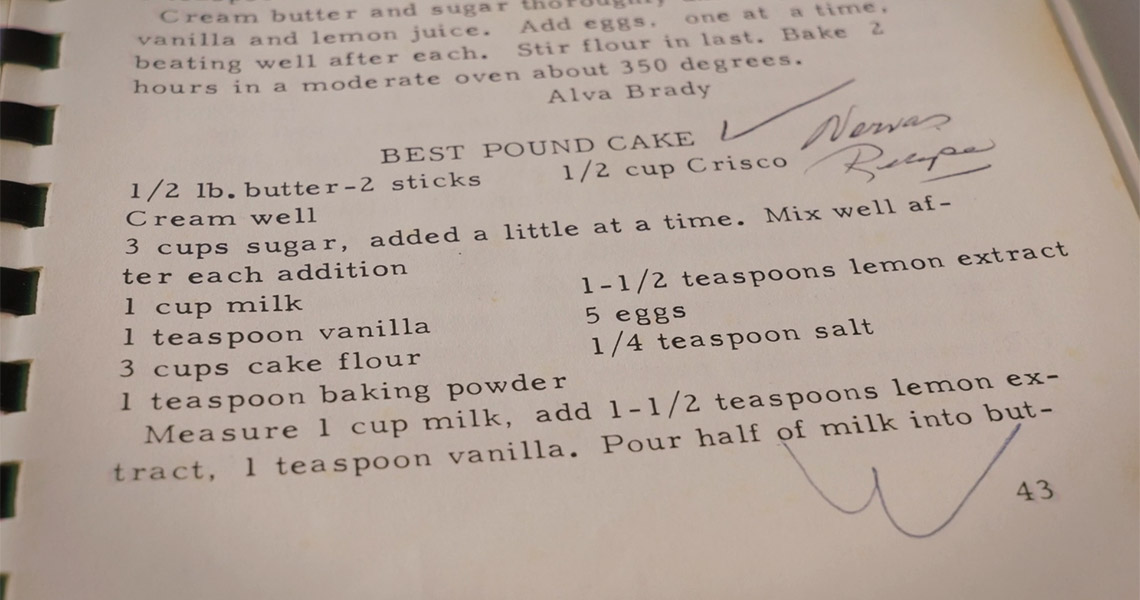 Cream butter and sugar thoroughly
vanilla and lemon juice. Add eggs, one at a time,
beating well after each. Stir flour in last. Bake 2
hours in a moderate oven about 350 degrees.
Alva Brady
BEST POUND CAKE
Nervas
Recipe
1/2 lb. butter-2 sticks 1/2 cup Crisco
Cream well
3 cups sugar, added a little at a time. Mix well af-
ter each addition
1 cup milk 1-1/2 teaspoons lemon extract
1 teaspoon vanilla 5 eggs
3 cups cake flour 1/4 teaspoon salt
1 teaspoon baking powder
Measure 1 cup milk, add 1-1/2 teaspoons lemon ex-
tract, 1 teaspoon vanilla. Pour half of milk into but-
43